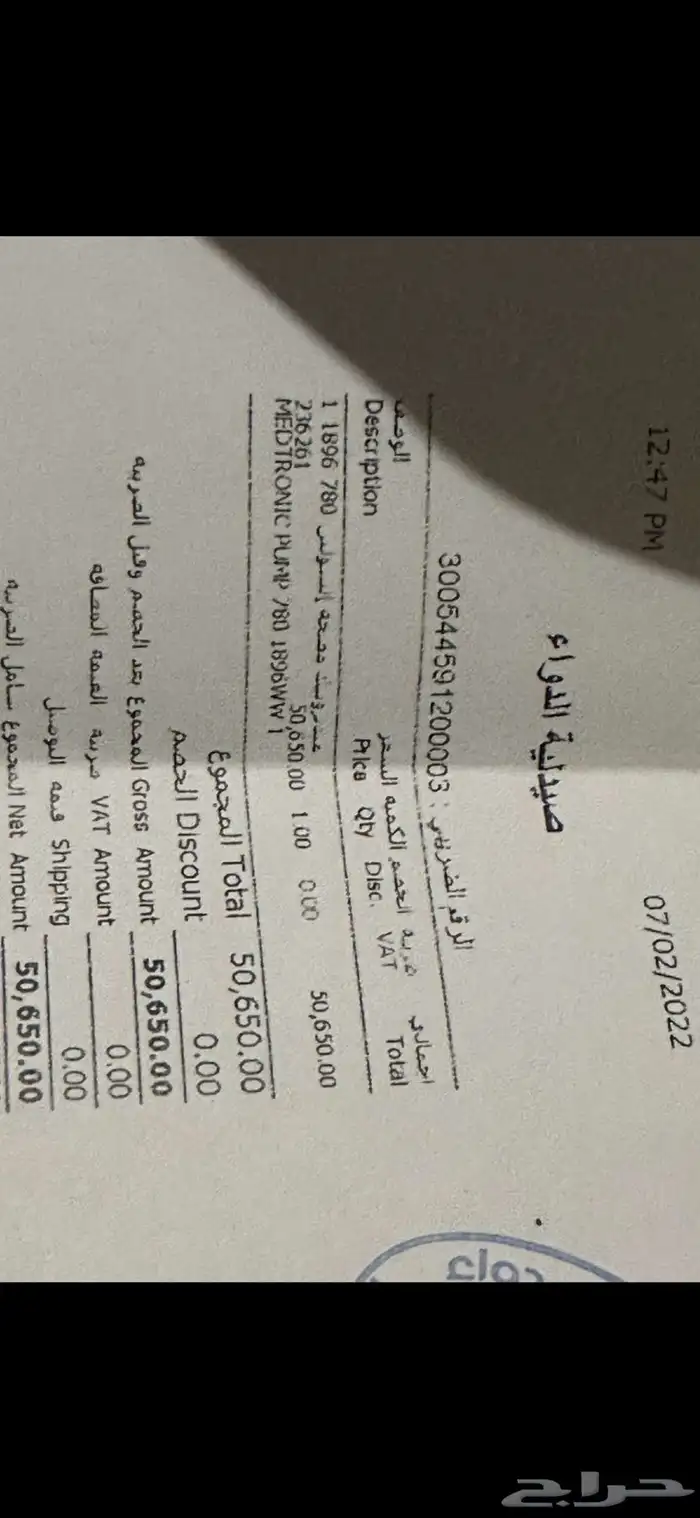 07/02/2022 12:47 PM
صيدلية الدواء
الرقم الضريبي : 300544591200003
الوصف السعر الكمية الخصم ضريبة اجمالي
Description Price Qty Disc. VAT Total
1 1896 780 مضخة إنسولين
236261 50,650.00 1.00 0.00 50,650.00
MEDTRONIC PUMP 780 1896WW 1
المجموع Total 50,650.00
الخصم Discount 0.00
المجموع بعد الخصم وقبل الضريبة Gross Amount 50,650.00
ضريبة القيمة المضافة VAT Amount 0.00
قيمة التوصيل Shipping 0.00
المجموع شامل الضريبة Net Amount 50,650.00
حراج